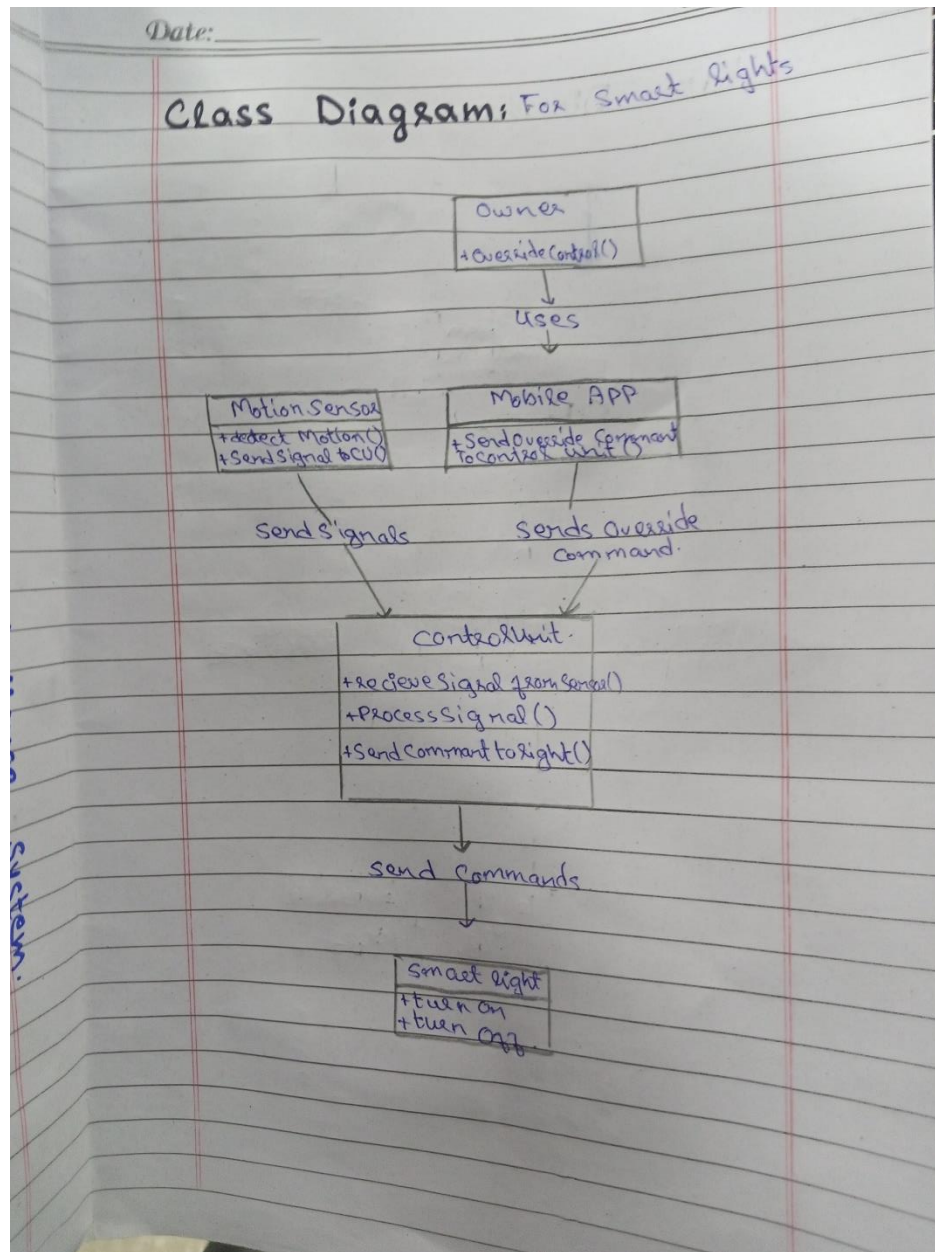 Date:
Class Diagram: For Smart lights
Owner
+OverrideControl()
uses
Motion Sensor
+detect Motion()
+Send Signal to CU()
Mobile APP
+Send Override Commant
To Control Unit ()
Send Signals
Sends Override
Command.
Control Unit.
+recieve Signal from Sensor()
+Process Signal()
+Send Commant to light()
Send Commands
Smart light
+turn on
+turn off.
System.